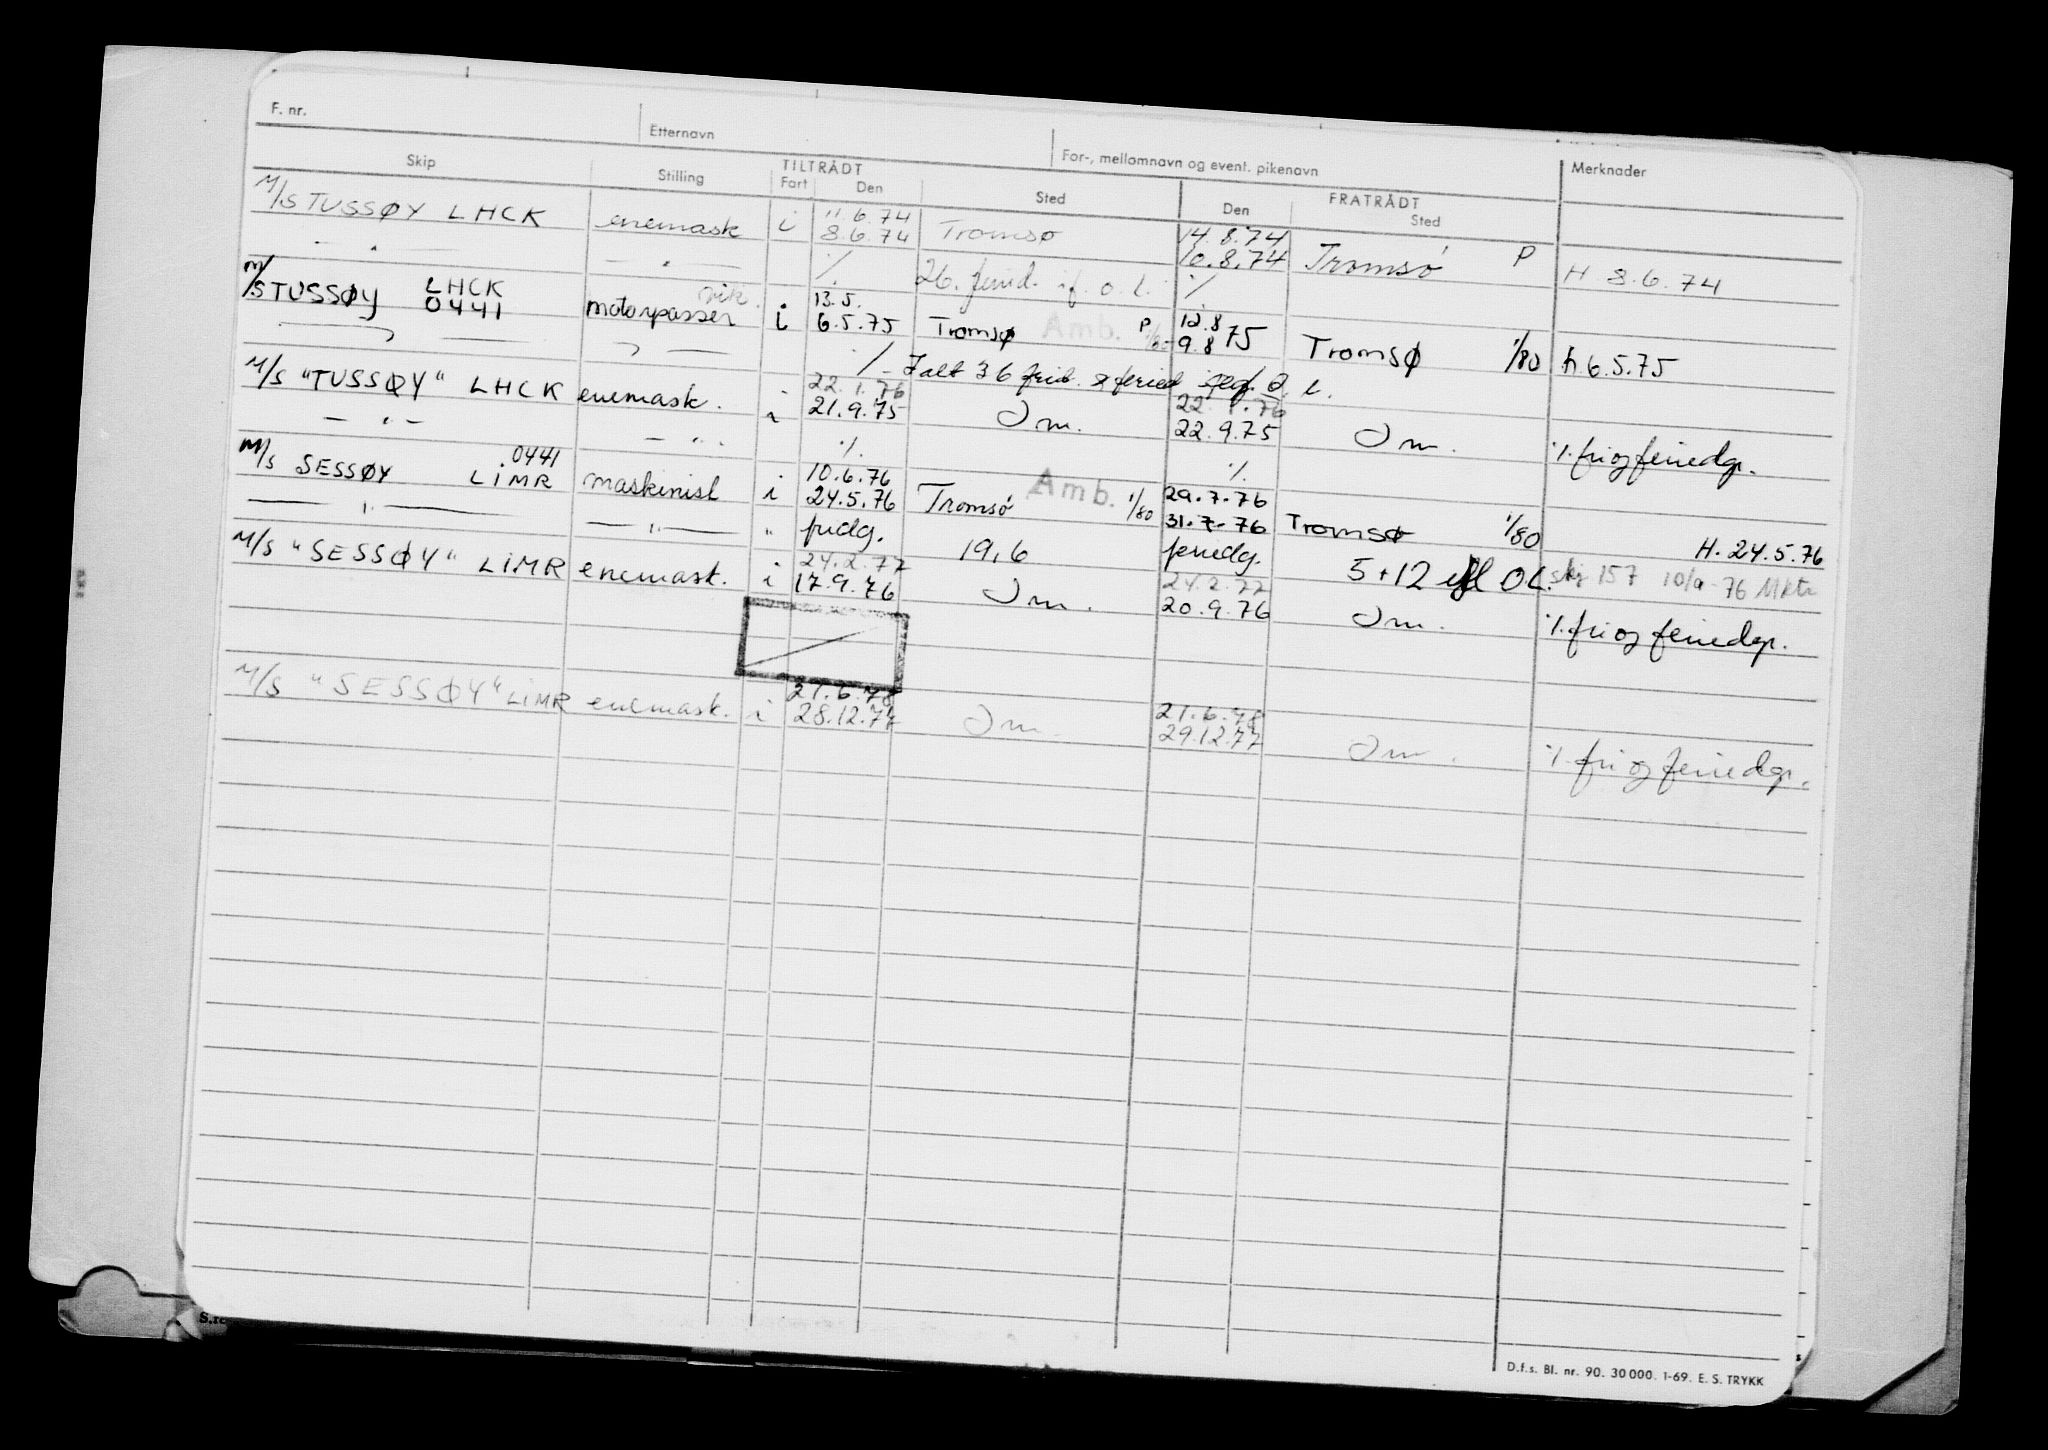 F. nr. Etternavn For-, mellomnavn og event. pikenavn Merknader
Skip Stilling TILTRÅDT Fart Den Sted Den FRATRÅDT Sted
11.6.74 14.8.74
M/S TUSSØY LHCK enemask i 8.6.74 Tromsø 10.8.74 Tromsø P H 8.6.74
— " — — " — ./. 26. feried. if. o. l. ./.
LHCK vik. 13.5. 12.8
M/S TUSSØY 0441 motorpasser i 6.5.75 Tromsø Amb. P 9.8 75 Tromsø 1/80 h 6.5.75
— " — — " — ./. Ialt 36 frid. & feried o. l.
22.1.76 22.1.76
M/S "TUSSØY" LHCK enemask. i 21.9.75 Om. 22.9.75 Om. ./. fri og feriedgr.
— " — — " — ./. ./.
0441 10.6.76 Amb. 29.7.76
M/S SESSØY LIMR maskinist i 24.5.76 Tromsø 1/80 31.7.76 Tromsø 1/80 H. 24.5.76
— " — — " — " fridg. 19,6 feriedg. 5+12 OL. 157 10/9-76
24.2.77 24.2.77
M/S "SESSØY" LIMR enemask. i 17.9.76 Om. 20.9.76 Om. ./. fri og feriedgr.
21.6.78 21.6.78
M/S "SESSØY" LIMR enemask. i 28.12.77 Om. 29.12.77 Om. ./. fri og feriedgr.
D.f.s. Bl. nr. 90. 30 000. 1-69. E. S. TRYKK